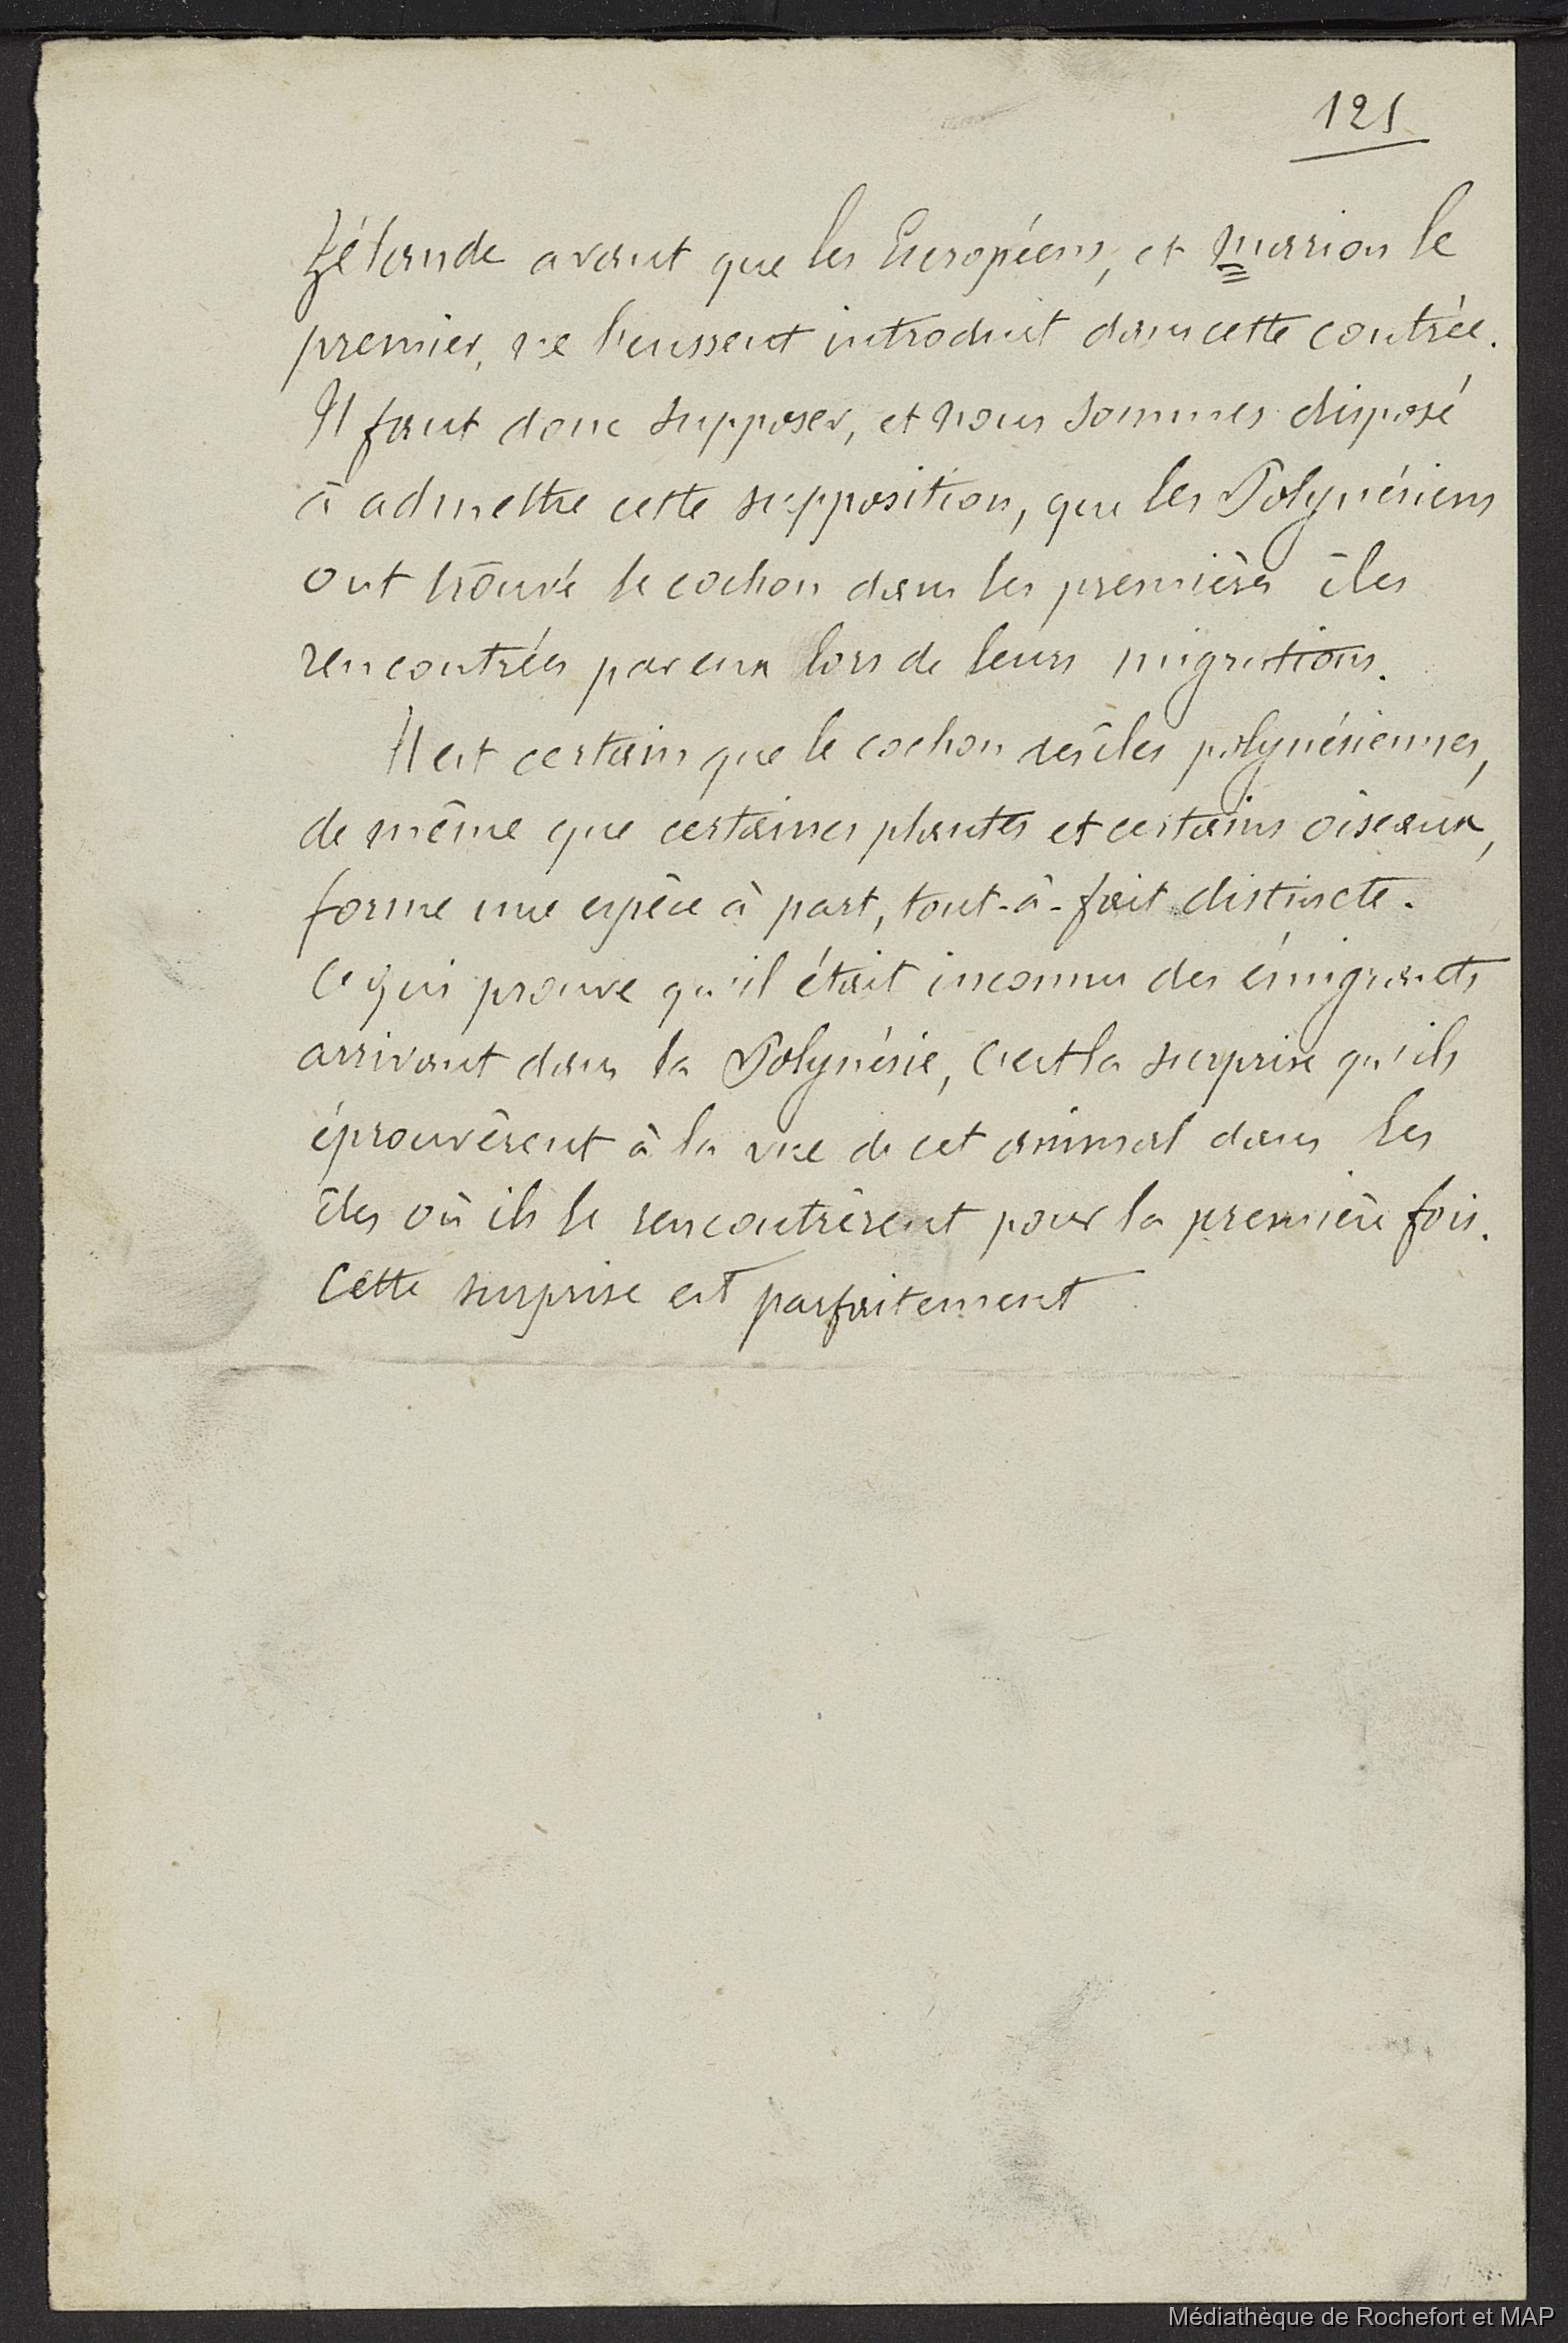 121
Zélande avant que les Européens, et marion le
premier, ne l'eussent introduit dans cette contrée.
Il faut donc supposer, et nous sommes disposé
à admettre cette supposition, que les Polynésiens
ont trouvé le cochon dans les premières îles
rencontrées par eux lors de leurs migrations.
Il est certain que le cochon des îles polynésiennes,
de même que certaines plantes et certains oiseaux,
forme une espèce à part, tout-à-fait distincte.
Ce qui prouve qu'il était inconnu des émigrants
arrivant dans la Polynésie, c'est la surprise qu'ils
éprouvèrent à la vue de cet animal dans les
îles où ils le rencontrèrent pour la première fois.
Cette surprise est parfaitement
Médiathèque de Rochefort et MAP